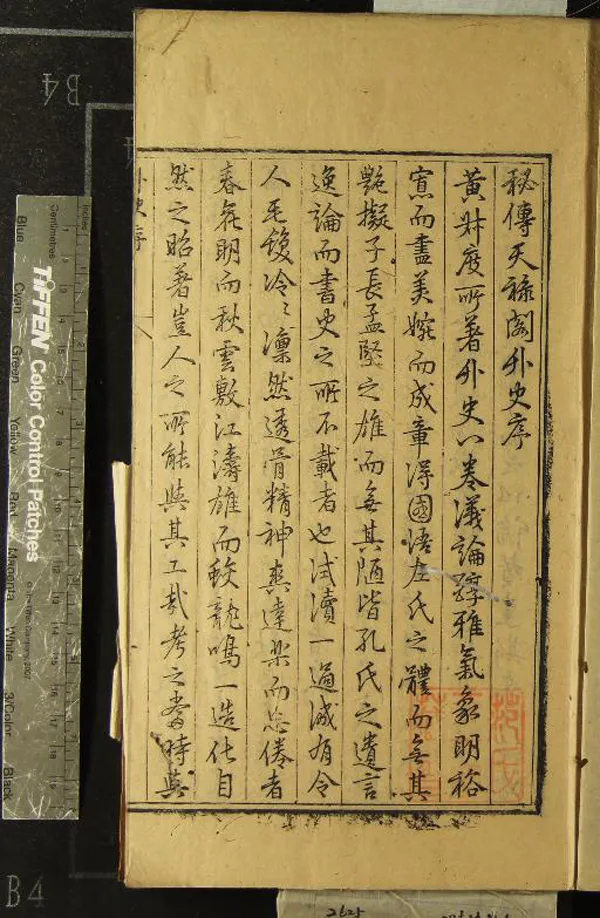 秘傳天祿閣外史序
黃叔度所著外史八卷議論醇雅氣象明裕
寬而盡美婉而成章得國語左氏之體而無其
艷擬子長孟堅之雄而無其陋皆孔氏之遺言
逸論而書史之所不載者也試讀一過誠有令
人毛髮冷〻凜然透骨精神爽達樂而忘倦者
春花明而秋雲敷江濤雄而蛟龍鳴一造化自
然之昭著豈人之所能與其工哉考之當時與
外史序
TIFFEN Color Control Patches
Blue
Cyan
Green
Yellow
Red
Magenta
White
3/Color
Black
Centimetres
Inches
B4
B4
2625